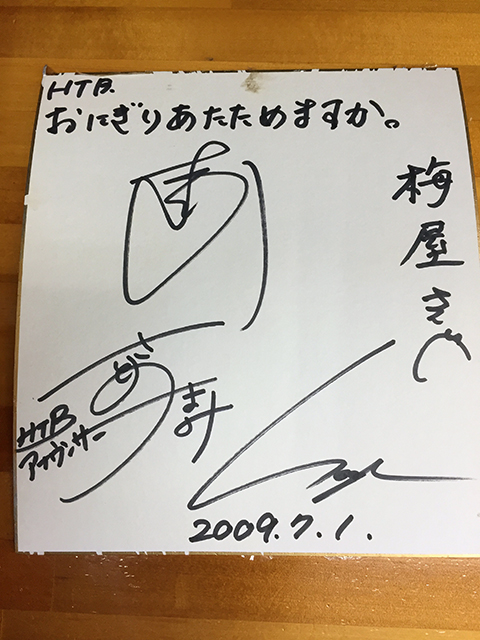 HTB.
おにぎりあたためますか。
梅屋さん
HTB
アナウンサー
まみ
2009.7.1.